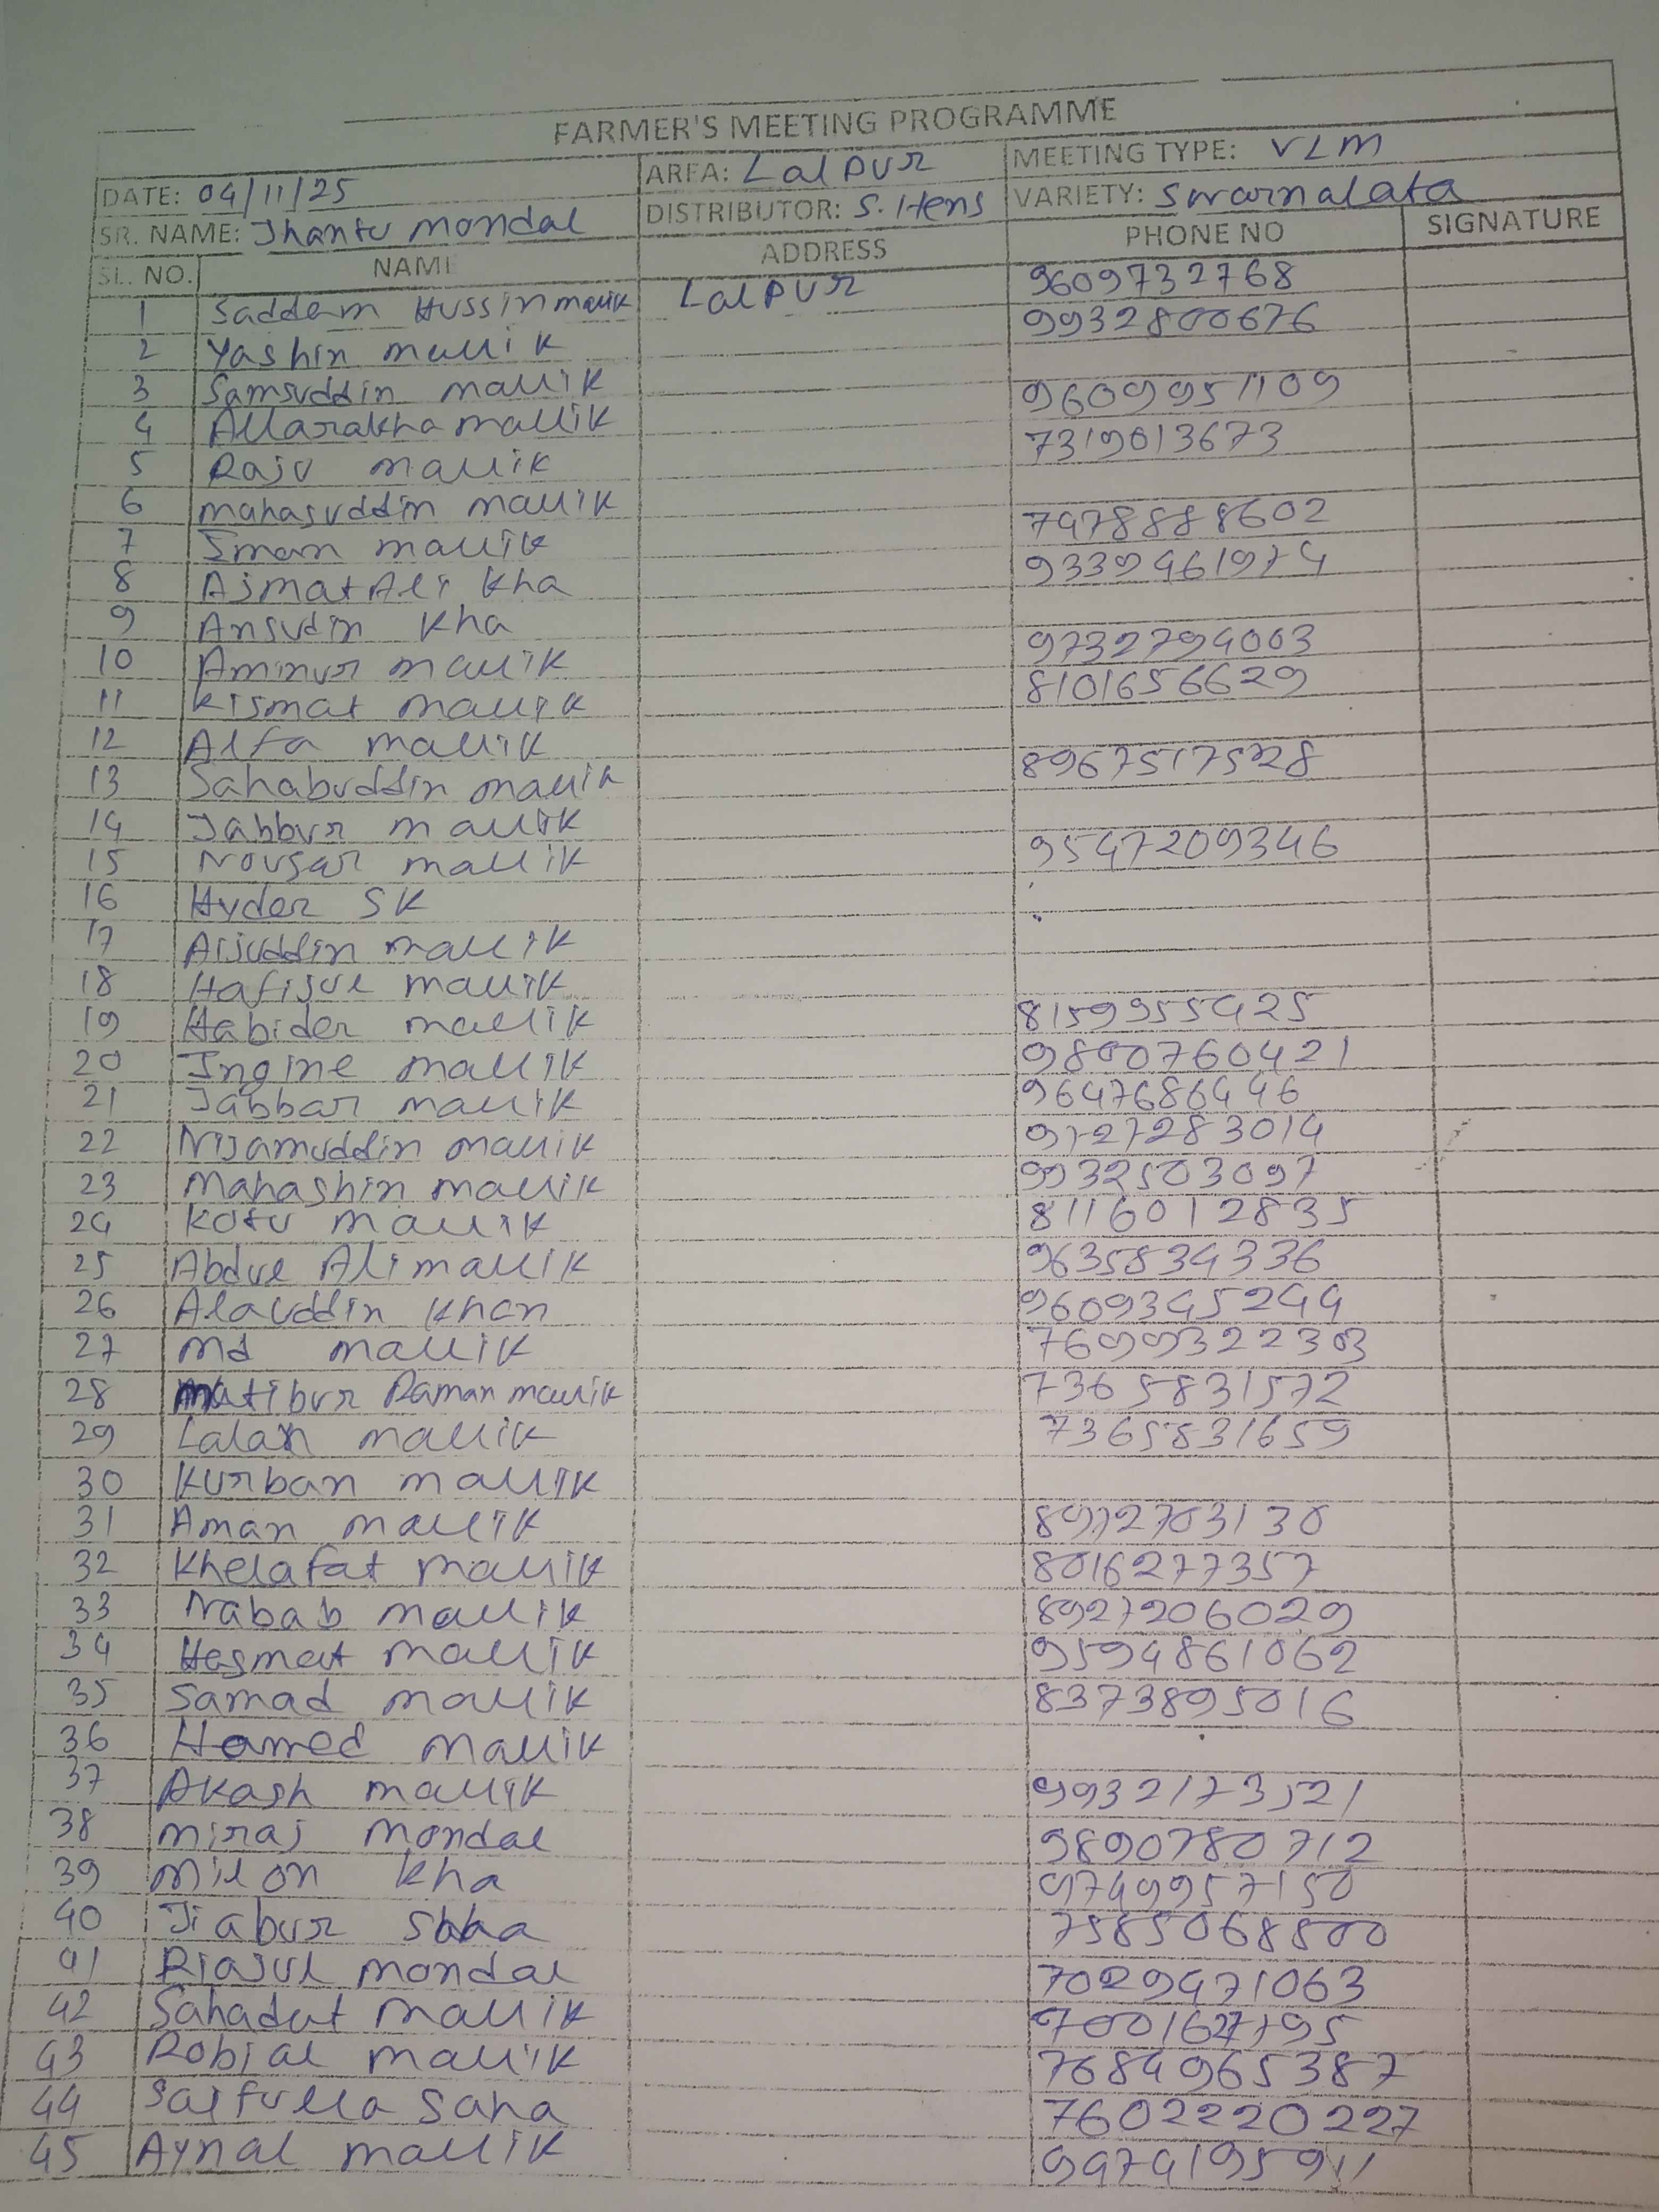 FARMER'S MEETING PROGRAMME
DATE: 04/11/25 AREA: Lalpur MEETING TYPE: VLM
SR. NAME: Jhantu mondal DISTRIBUTOR: S. Hens VARIETY: Swarnalata
SL. NO. NAME ADDRESS PHONE NO SIGNATURE
1 Saddam Hussin mallik Lalpur 9609732768
2 Yashin mallik 9932800676
3 Samsuddin mallik
4 Allarakha mallik 9609951109
5 Raju mallik 7319013673
6 mahasuddin mallik
7 Iman mallik 7478888602
8 Ajmat Ali kha 9339461974
9 Ansudin kha
10 Aminur mallik 9732794003
11 kismat mallik 8101656629
12 Alfa mallik
13 Sahabuddin mallik 8967517528
14 Jabbur mallik
15 Nousar mallik 9547209346
16 Hyder SK
17 Aijuddin mallik
18 Hafijul mallik
19 Habider mallik 8159955425
20 Ingine mallik 9800760421
21 Jabbar mallik 9647686446
22 Nijamuddin mallik
23 Mahashin mallik 9932503097
24 kotu mallik 8116012835
25 Abdul Ali mallik 9635834336
26 Alauddin khan 9609345244
27 Md mallik 7699322303
28 Matibur Raman mallik 7365831572
29 Lalan mallik 7365831659
30 Kurban mallik
31 Aman mallik
32 Khelafat mallik 8016277357
33 Nabab mallik 8927206029
34 Hesmat mallik 9594861062
35 Samad mallik 8373895016
36 Hamed mallik
37 Akash mallik 9932173521
38 miraj mondal 9890780712
39 milon kha 9749957150
40 Jiabur 7585068800
41 Riajul mondal 7029471063
42 Sahadat mallik
43 Robial mallik 7684965387
44 Saifulla Saha 7602220227
45 Aynal mallik